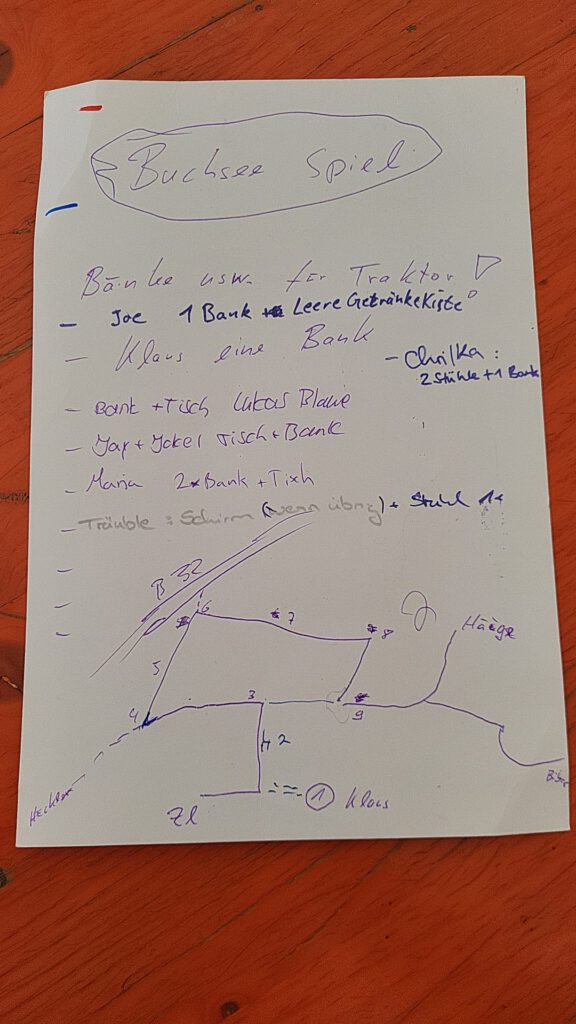 Buchsee Spiel
Bänke usw. für Traktor
- Joe 1 Bank + Leere Getränkekiste
- Klaus eine Bank
- Chri/Ka:
2 Stühle + 1 Bank
- Bank + Tisch Lukas
- + Jokel Tisch + Bank
- Maria 2x Bank + Tisch
- Träuble: Schirm (wenn übrig) + Stuhl
-
-
-
B 32
6
7
8
5
4
3
9
2
1 Klaus